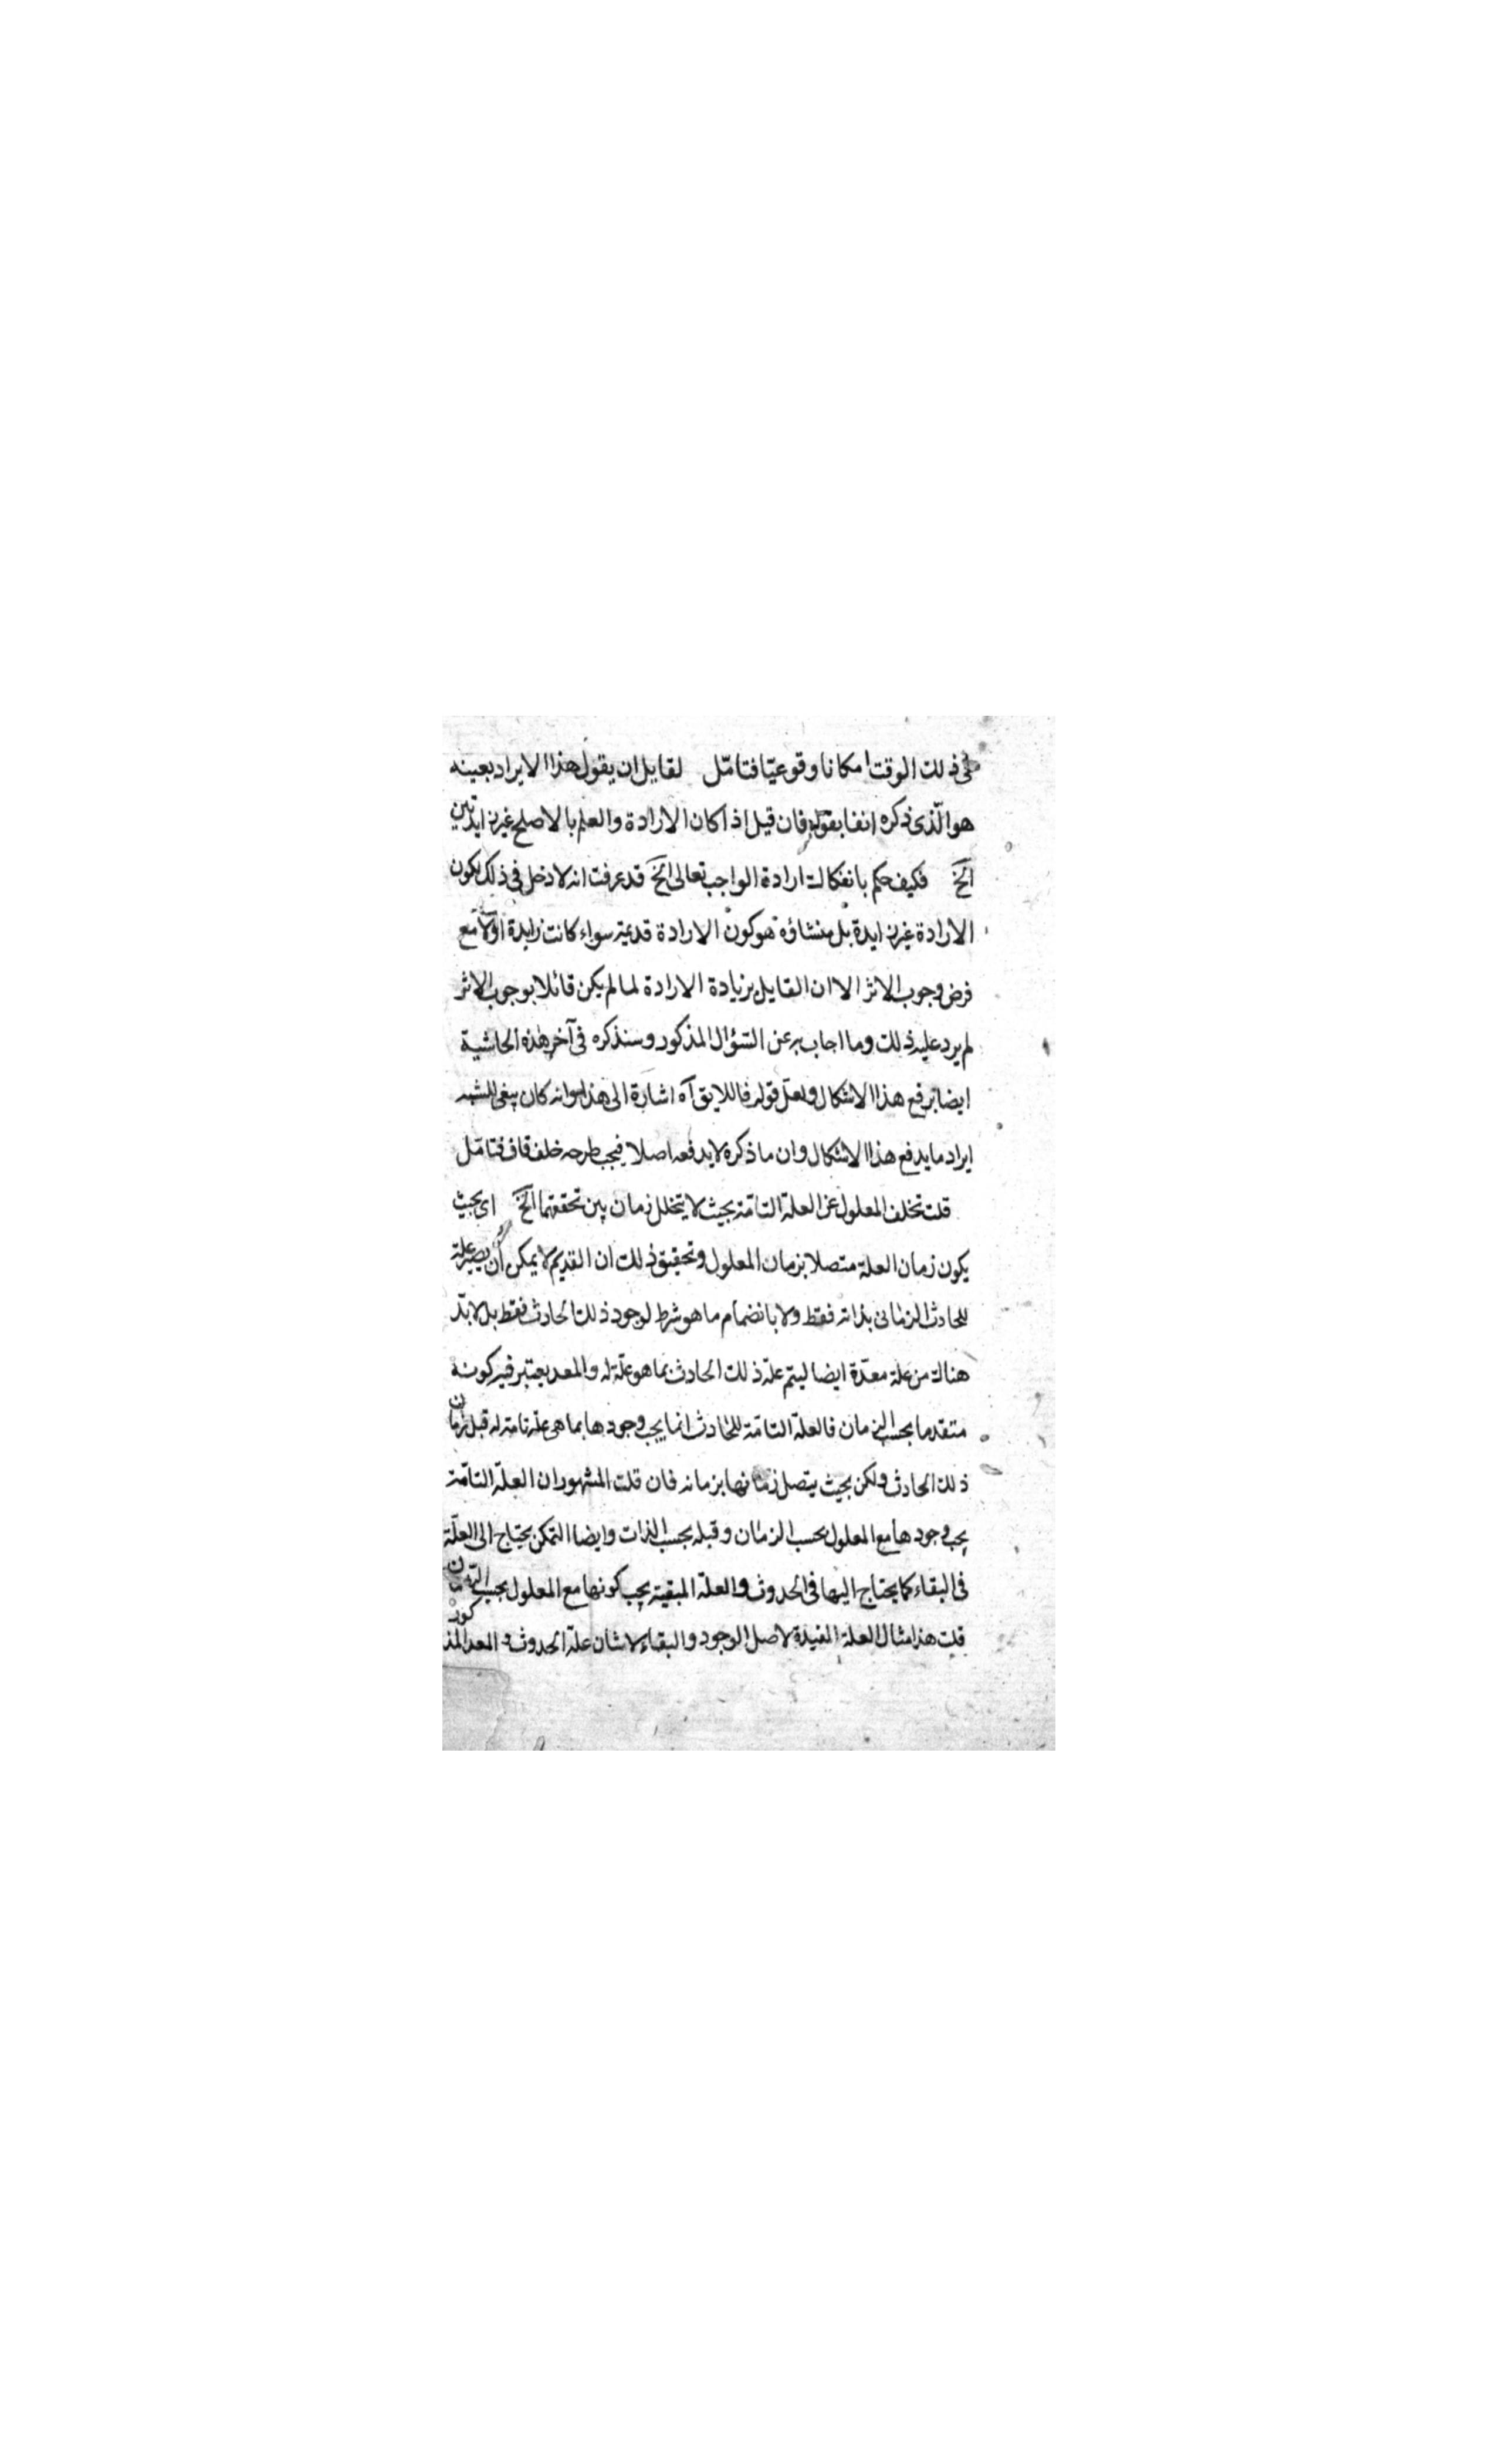 فى ذلك الوقت امكانا وقوعيّا فتامّل لقايل ان يقول هذا الايراد بعينه
هو الّذى ذكره انفا بقوله فان قيل اذا كان الارادة والعلم بالاصلح غير زايدتين
الخ فكيف حكم بانفكاك ارادة الواجب تعالى الخ قد عرفت انه لا دخل فى ذلك لكون
الارادة غير زايدة بل منشاؤه هو كون الارادة قديمة سواء كانت زايدة اولا مع
فرض وجوب الاثر الا ان القايل بزيادة الارادة لما لم يكن قائلا بوجوب الاثر
لم يرد عليه ذلك وما اجاب به عن السّؤال المذكور وسنذكره فى آخر هذه الحاشية
ايضا يرفع هذا الاشكال ولعل قوله فاللايق آه اشارة الى هذا وانه كان ينبغى
ايراد ما يدفع هذا الاشكال وان ما ذكره لا يدفعه اصلا فيجب طرحه خلف قاف فتامّل
قلت تخلف المعلول عن العلة التامّة بحيث لا يتخلل زمان بين تحققهما الخ اى بحيث
يكون زمان العلة متصلا بزمان المعلول وتحقيق ذلك ان القديم لا يمكن أن يصير علة
للحادث الزمانى بذاته فقط ولا بانضمام ما هو شرط لوجود ذلك الحادث فقط بل لا بدّ
هناك من علة معدّة ايضا ليتم علة ذلك الحادث بما هو علّة له والمعد يعتبر فيه كونه
متقدما بحسب الزمان فالعلة التامّة للحادث انما يجب وجودها بما هى علة تامة له قبل زمان
ذلك الحادث ولكن بحيث يتصل زمانها بزمانه فان قلت المشهور ان العلة التامّة
يجب وجودها مع المعلول بحسب الزمان وقبله بحسب الذات وايضا الممكن يحتاج الى العلّة
فى البقاء كما يحتاج اليها فى الحدوث والعلة المبقية يجب كونها مع المعلول بحسب الزمان
قلت هذا شان العلة المفيدة لاصل الوجود والبقاء لا شان علة الحدوث والمعد المذكور